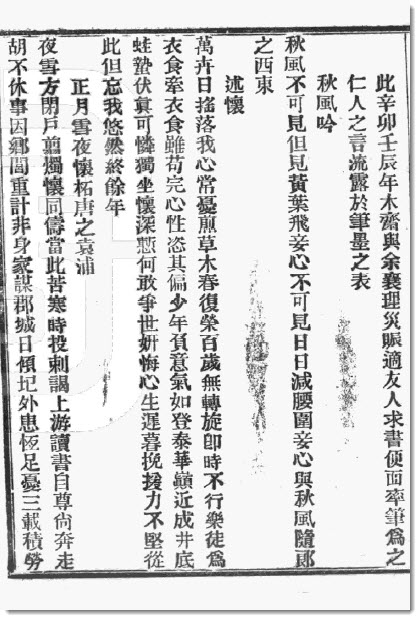 此辛卯壬辰年木齋與余襄理災賑適友人求書便面率筆爲之
仁人之言流露於筆墨之表
秋風吟
秋風不可見但見黃葉飛妾心不可見日日減腰圍妾心與秋風隨郞
之西東
述懷
萬卉日搖落我心常憂煎草木春復榮百歲無轉旋卽時不行樂徒爲
衣食牽衣食雖苟完心性恣其偏少年負意氣如登泰華巓近成井底
蛙蟄伏眞可憐獨坐懷深慙何敢爭世姸悔心生遲暮挽援力不堅從
此但忘我悠然終餘年
正月雪夜懷柘唐之袁浦
夜雪方閉戶翦燭懷同儔當此苦寒時投刺謁上游讀書自尊尙奔走
胡不休事因鄕閭重計非身家謀郡城日傾圮外患恆足憂三載積勞